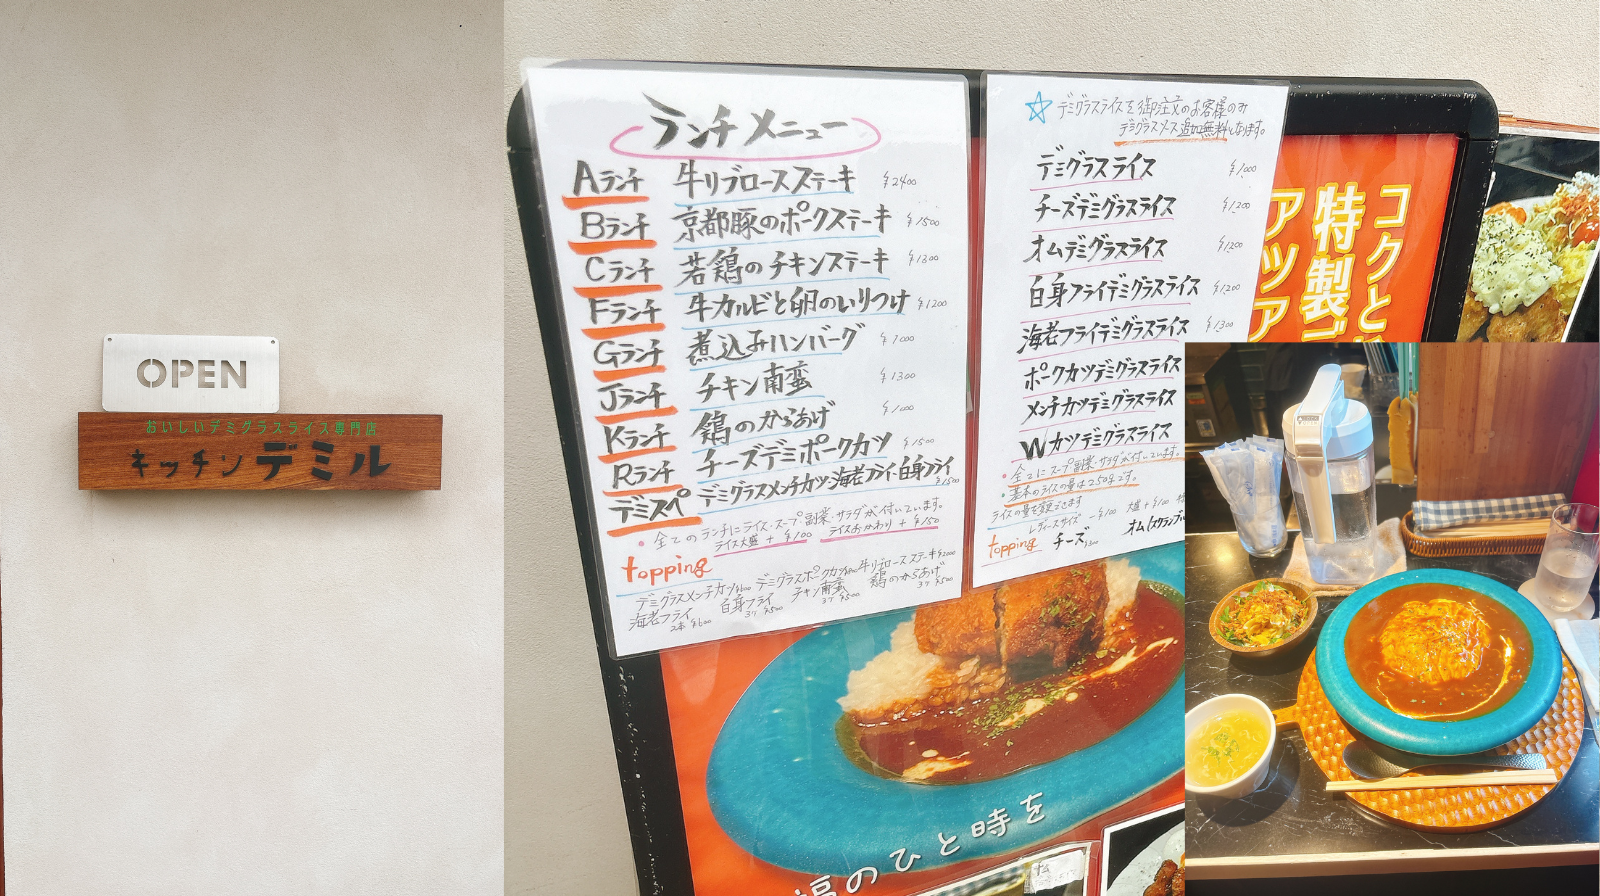 OPEN
おいしいデミグラスライス専門店
キッチンデミル
ランチメニュー
Aランチ 牛リブロースステーキ ¥2400
Bランチ 京都豚のポークステーキ ¥1500
Cランチ 若鶏のチキンステーキ ¥1300
Fランチ 牛カルビと卵のいりつけ ¥1200
Gランチ 煮込みハンバーグ
Jランチ チキン南蛮 ¥1300
Kランチ 鶏のからあげ
Rランチ チーズデミポークカツ ¥1500
デミスペ デミグラスメンチカツ・海老フライ・白身フライ ¥1500
・全てのランチにライス・スープ 副菜・サラダが付いています。
ライス大盛 + ¥100 ライスおかわり + ¥150
topping
デミグラスメンチカツ デミグラスポークカツ 牛リブロースステーキ ¥2000
海老フライ 2本 ¥600 白身フライ 3ケ ¥500 チキン南蛮 3ケ ¥500 鶏のからあげ 3ケ ¥500
☆デミグラスライスを御注文のお客様のみ
デミグラスソース追加無料となります。
デミグラスライス ¥1,000
チーズデミグラスライス ¥1,200
オムデミグラスライス ¥1,200
白身フライデミグラスライス ¥1,200
海老フライデミグラスライス ¥1300
ポークカツデミグラスライス
メンチカツデミグラスライス
Wカツデミグラスライス
・全てにスープ 副菜・サラダが付いています。
・基本のライスの量は250gです。
ライスの量を変更できます
レディースサイズ -¥100 大盛 +¥100
topping チーズ オム(スクランブル
コクと
特製
アツア
福のひと時を